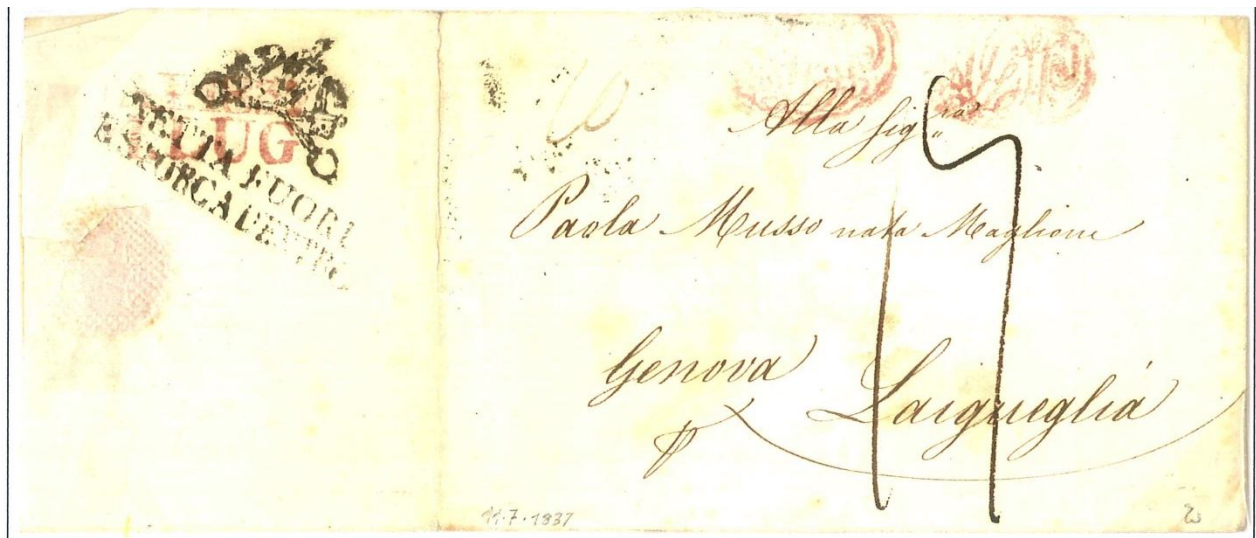 LUG
NETTA FUORI
E SPORCA DENTRO
Alla Sig.ra
Paola Musso nata Maglione
Genova
p Laigueglia
17
11.7.1837